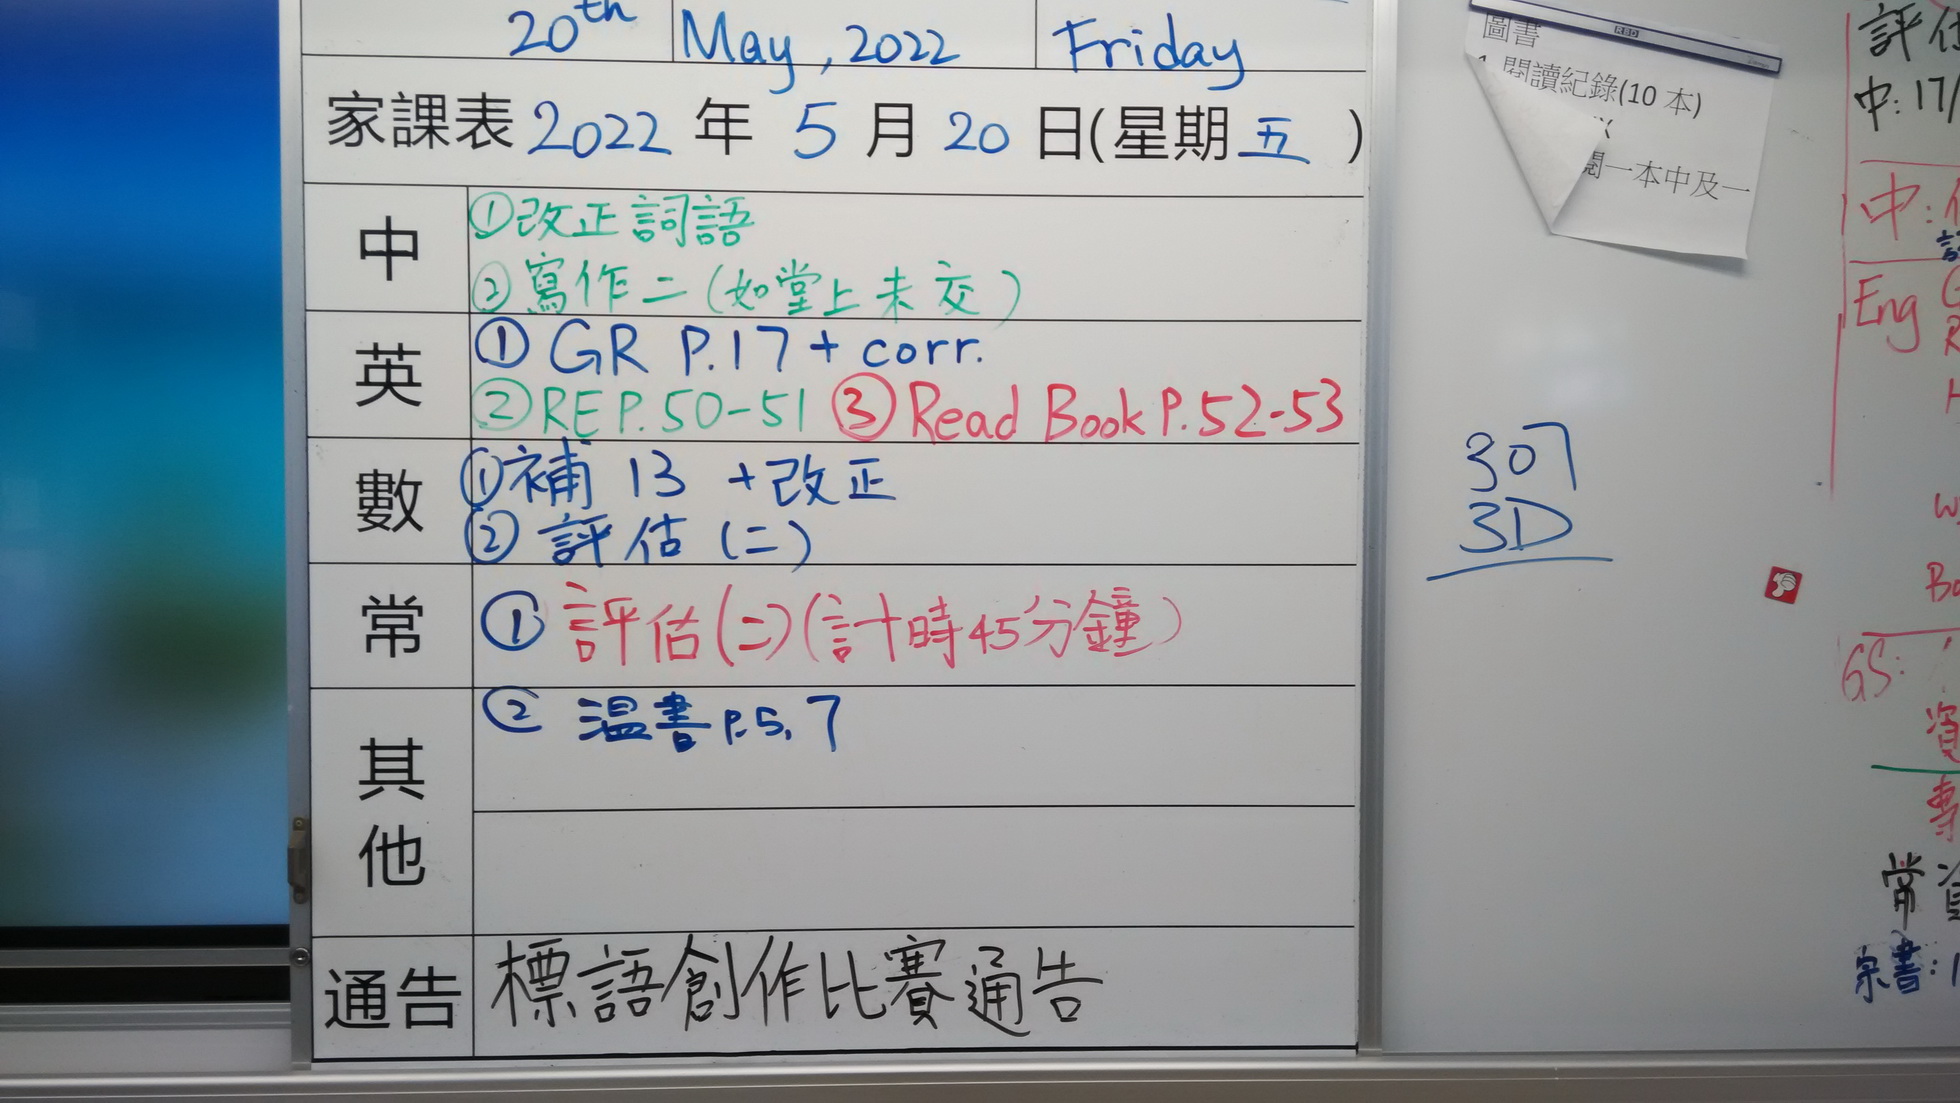 20th May, 2022 Friday
家課表 2022 年 5 月 20 日(星期 五 )
中
①改正詞語
②寫作二(如堂上未交)
英
① GR P.17 + corr.
② RE P.50-51 ③ Read Book P.52-53
數
①補 13 +改正
② 評估 (二)
常
① 評估(二)(計時45分鐘)
其他
② 温書 p.5, 7
通告
標語創作比賽通告
圖書
閱讀紀錄(10 本)
閱一本中及一
307
3D
評
中: 17/
中:
Eng G
R
H
W
Bo
GS:
資
專
常 資